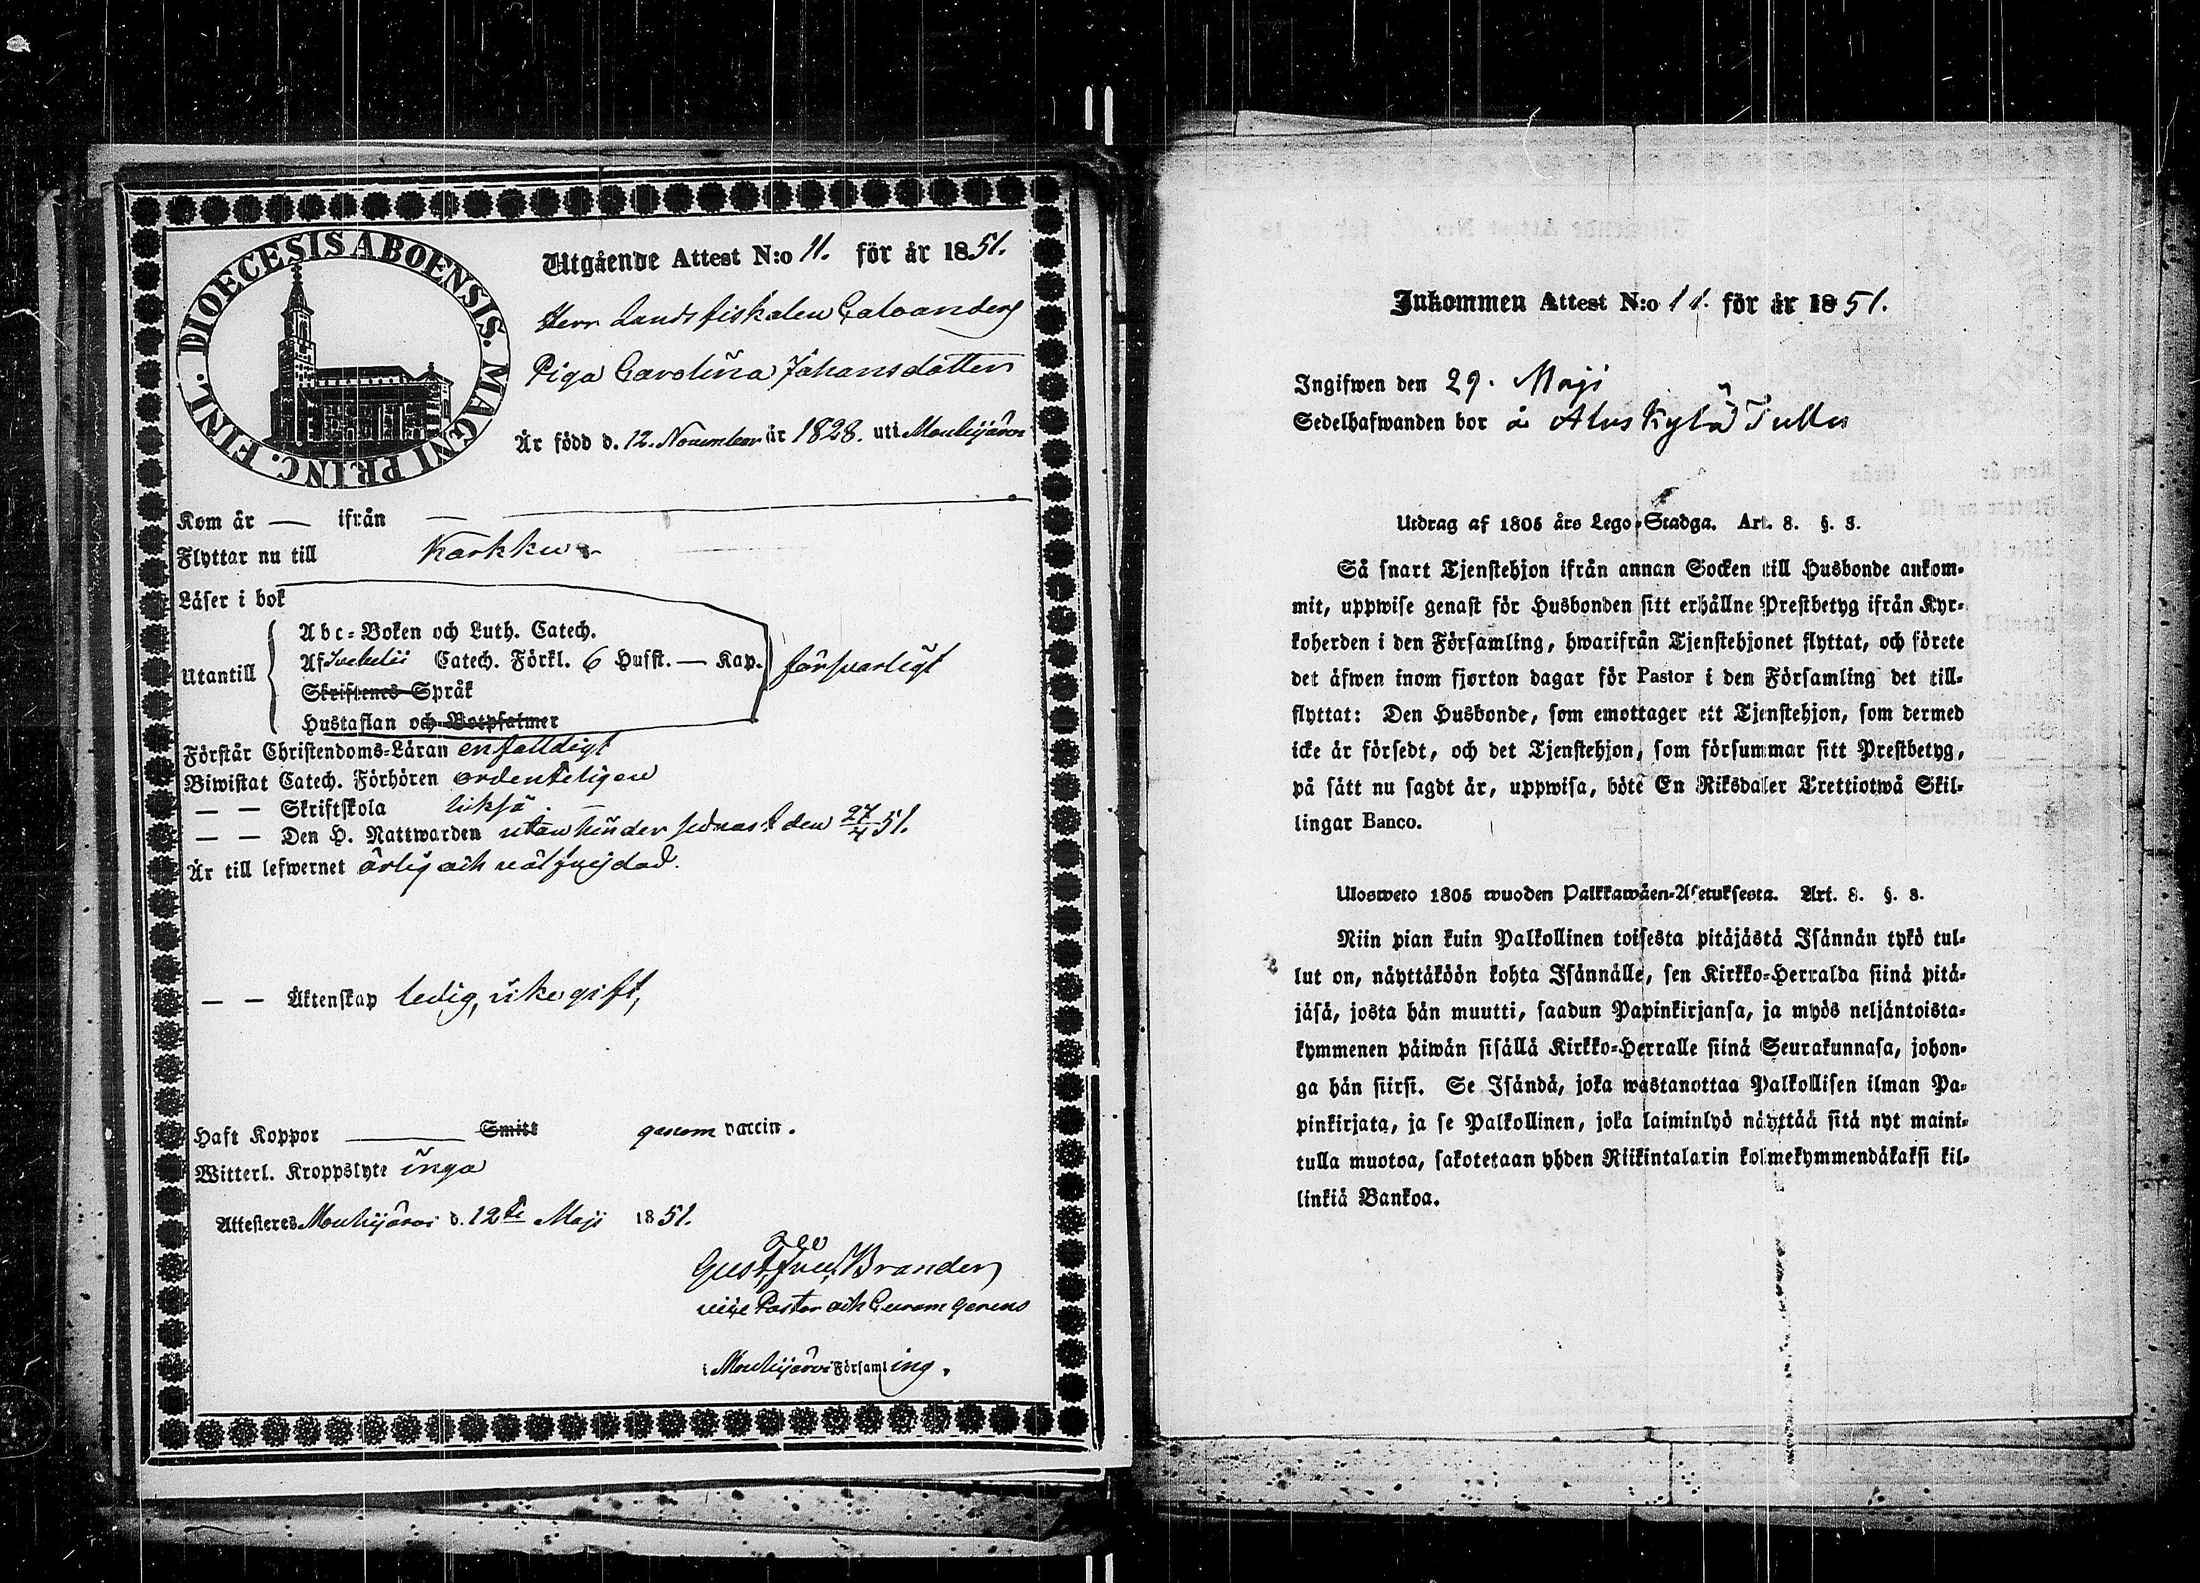 DIOECESIS ABOENSIS. MAGNI PRINC. FINL.
Utgående Attest N:o 11. för år 1851.
Herr Landsfiskalen Calvanders
Piga Carolina Johansdotter
Är född d. 12. November år 1828. uti Mouhijärvi
Kom år — ifrån —
Flyttar nu till Karkku
Läser i bok
Utantill
Abc-Boken och Luth. Catech.
Af Svebelii Catech. Förkl. 6 Hufst. — Kap. försvarligt
Skriftenes Språk
Hustaflan och Botpsalmer
Förstår Christendoms-Läran enfalldigt
Biwistat Catech. Förhören ordenteligen
— — Skriftskola likså
— — Den H. Nattwarden utan hinder sednast den 27/4 51.
Är till lefwernet ärlig och välfrejdad.
— — Äktenskap ledig, icke gift,
Haft Koppor —— Smitt genom vaccin.
Witterl. Kroppslyte inga
Attesteras Mouhijärvi d. 12te Maji 1851.
Gust. Brander
vice Pastor och Curam gerens
i Mouhijärvi Församling.
Inkommen Attest N:o 11. för år 1851.
Ingifwen den 29. Maji
Sedelhafwanden bor å Aluskylä Tulla
Utdrag af 1805 års Lego-Stadga. Art. 8. §. 3.
Så snart Tjenstehjon ifrån annan Socken till Husbonde ankom-
mit, uppwise genast för Husbonden sitt erhållne Prestbetyg ifrån Kyr-
koherden i den Församling, hwarifrån Tjenstehjonet flyttat, och förete
det äfwen inom fjorton dagar för Pastor i den Församling det till-
flyttat: Den Husbonde, som emottager ett Tjenstehjon, som dermed
icke är försedt, och det Tjenstehjon, som försummar sitt Prestbetyg,
på sätt nu sagdt är, uppwisa, böte En Riksdaler Trettiotwå Skil-
lingar Banco.
Ulosweto 1805 wuoden Palkkawäen-Asetuksesta. Art. 8. §. 3.
Niin pian kuin Palkollinen toisesta pitäjästä Isännän tykö tul-
lut on, näyttäköön kohta Isännälle, sen Kirkko-Herralda siinä pitä-
jäsä, josta hän muutti, saadun Papinkirjansa, ja myös neljäntoista-
kymmenen päiwän sisällä Kirkko-Herralle siinä Seurakunnasa, johon-
ga hän siirsi. Se Isändä, joka wastanottaa Palkollisen ilman Pa-
pinkirjata, ja se Palkollinen, joka laiminlyö näyttää sitä nyt maini-
tulla muotoa, sakotetaan yhden Riikintalarin kolmekymmendäkaksi kil-
linkiä Bankoa.